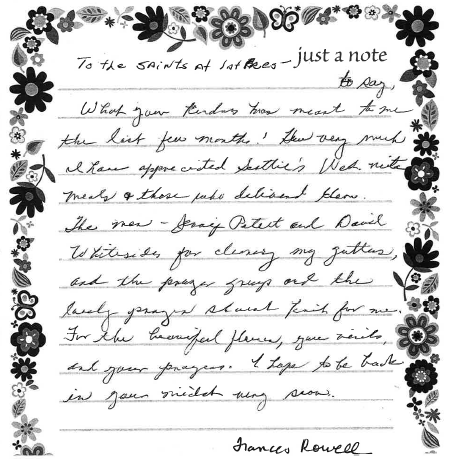 To the SAINTS At 1st Pres - just a note
to say,
What your kindness has meant to me
the last few months! How very much
I have appreciated Scottie's Wed. nite
meals & those who delivered them.
The men - Pstert and David
Whitesides for cleaning my gutters,
and the prayer group and the
lovely prayer shawl for me.
For the beautiful flowers, your visits,
and your prayers. I hope to be back
in your midst very soon.
Frances Rowell